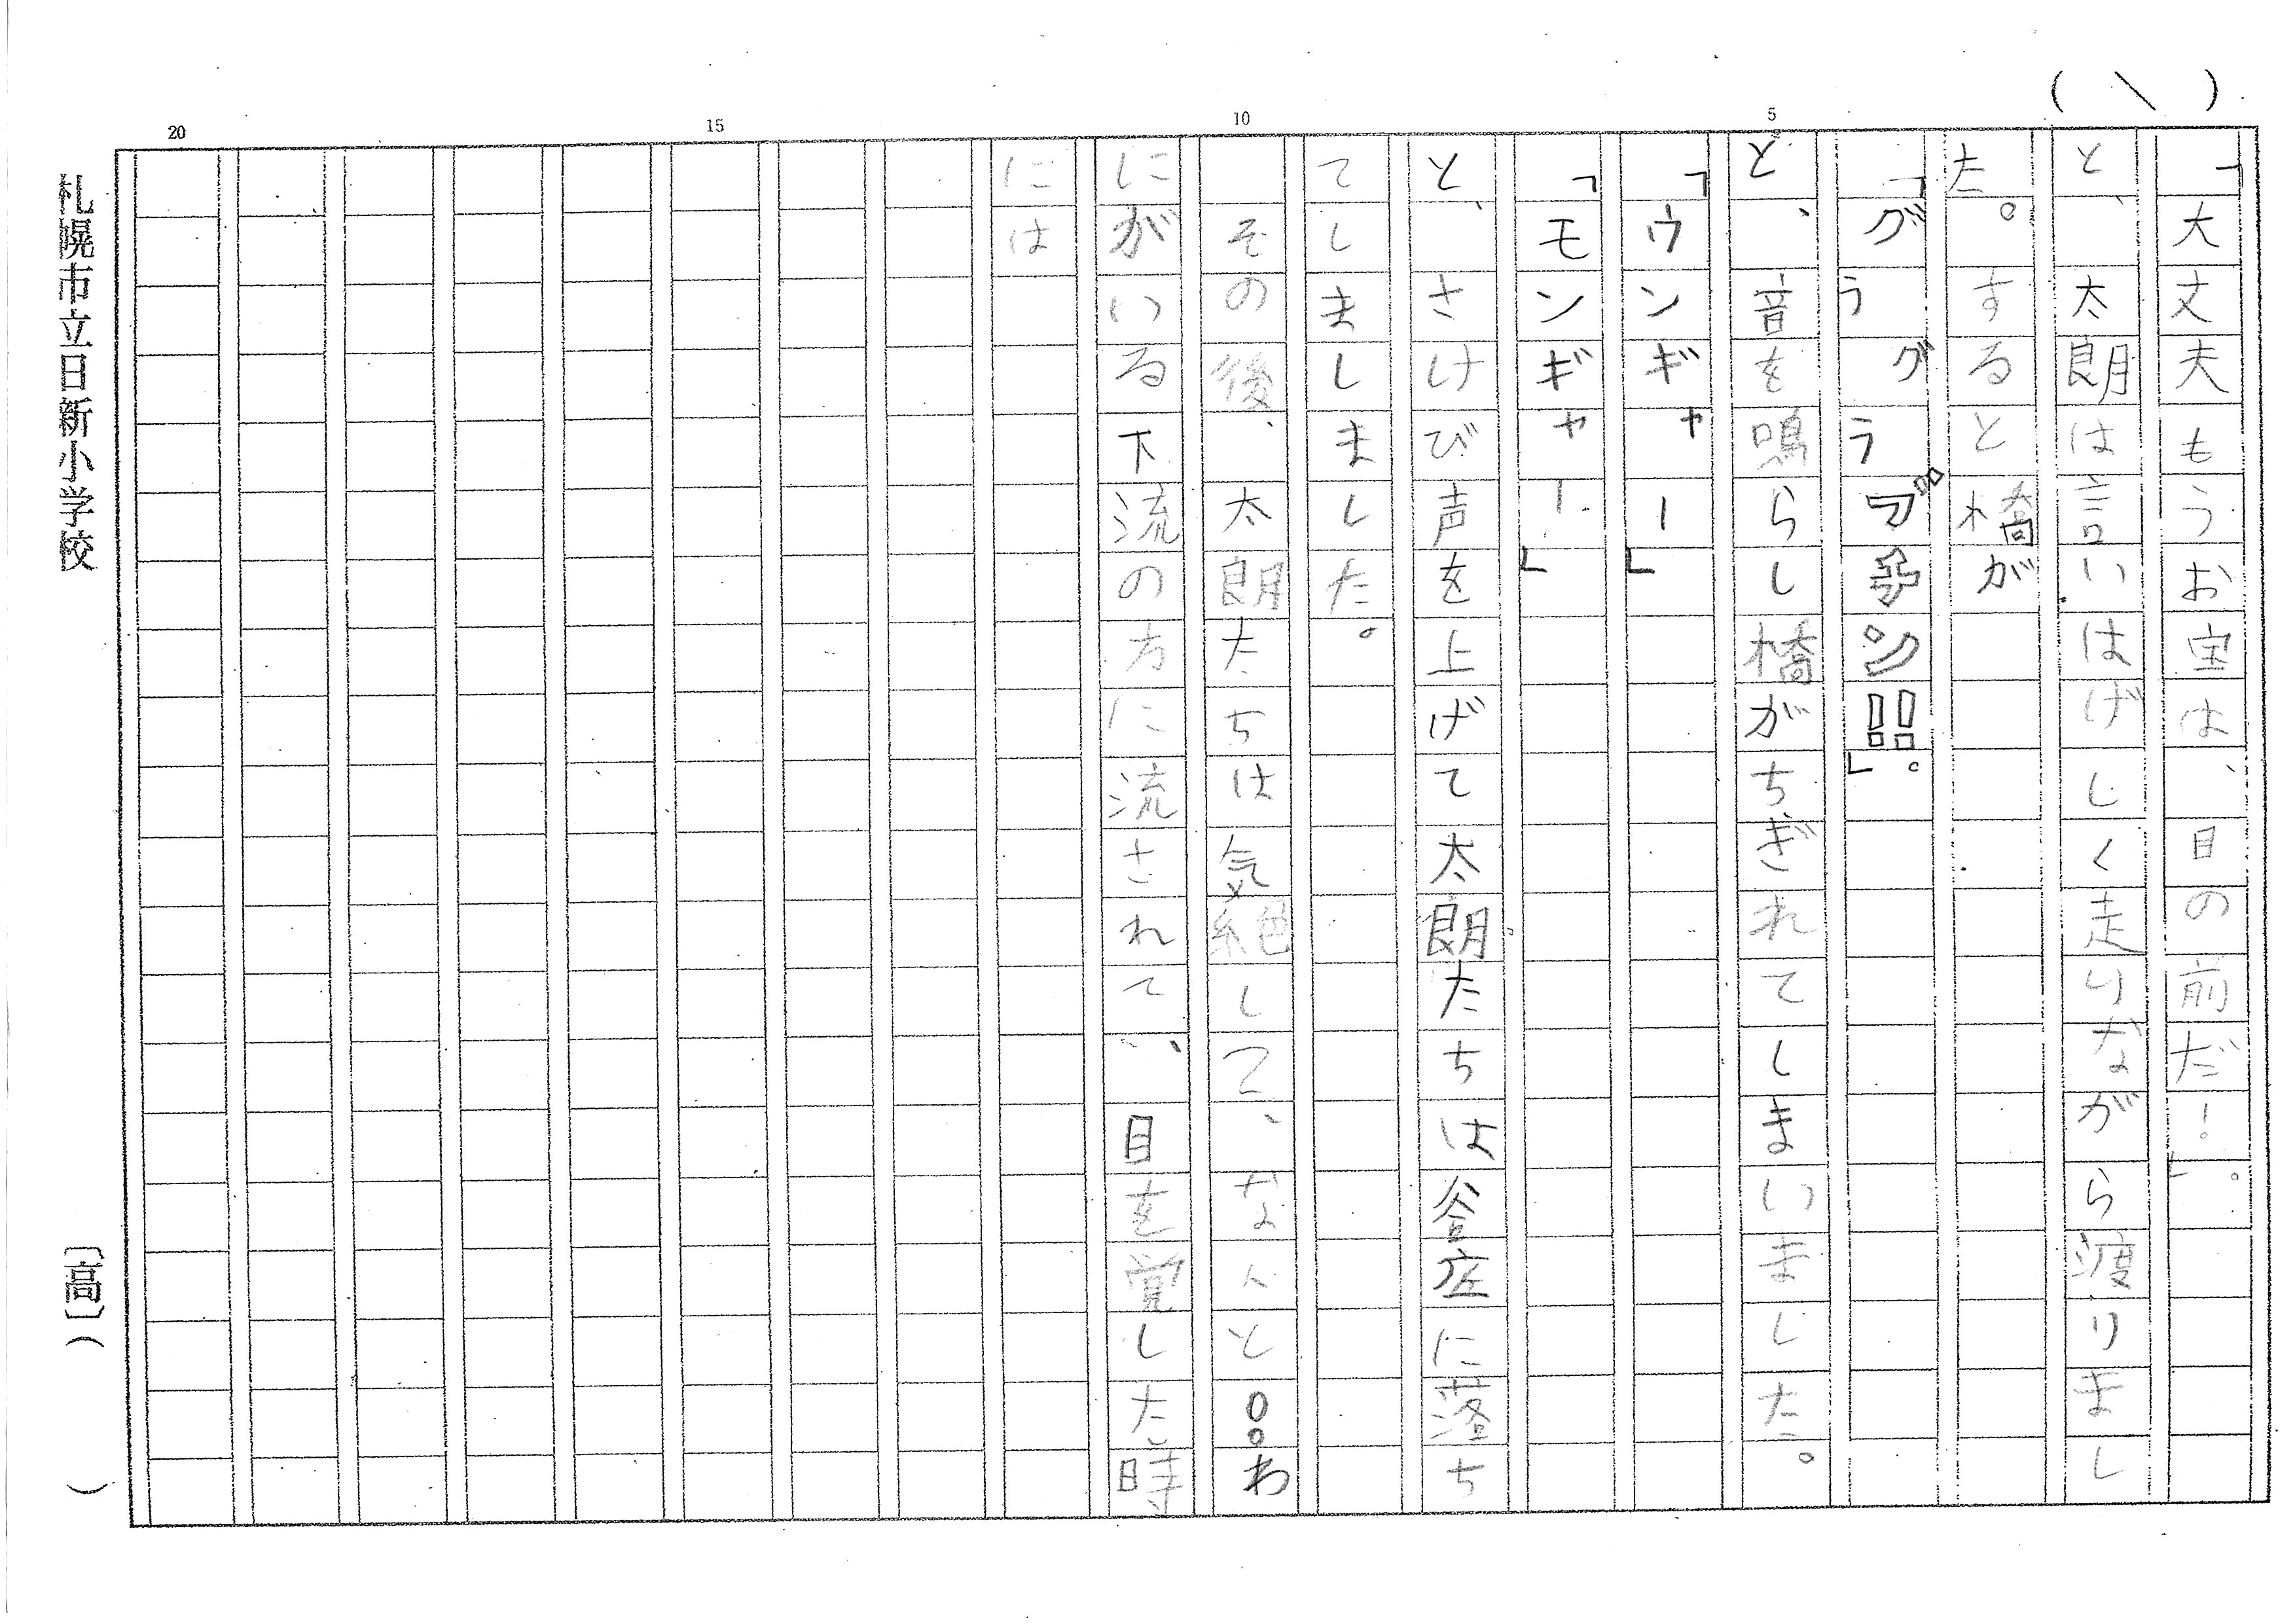 ( \ )
「大丈夫もうお宝は、目の前だ!」。
と、太朗は言いはげしく走りながら渡りまし
た。すると橋が
「グうグラ
と、音を鳴らし橋がちぎれてしまいました。
「ウンギャー」
「モンギャー」
と、さけび声を上げて太朗たちは谷底に落ち
てしましました。
その後、太朗たちは気絶して、なんと!わ
にがいる下流の方に流されて、目を覚した時
には
5
10
15
20
札幌市立日新小学校
〔高〕( )